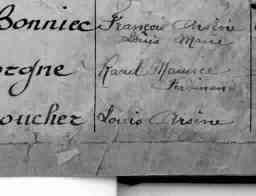 Bonniec François Arsène
Louis Marie
orgne Raoul Maurice
Ferdinand
oucher Louis Arsène